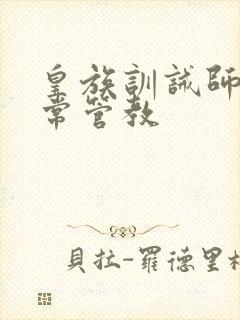 皇族訓誡師
常管教
貝拉-羅德里